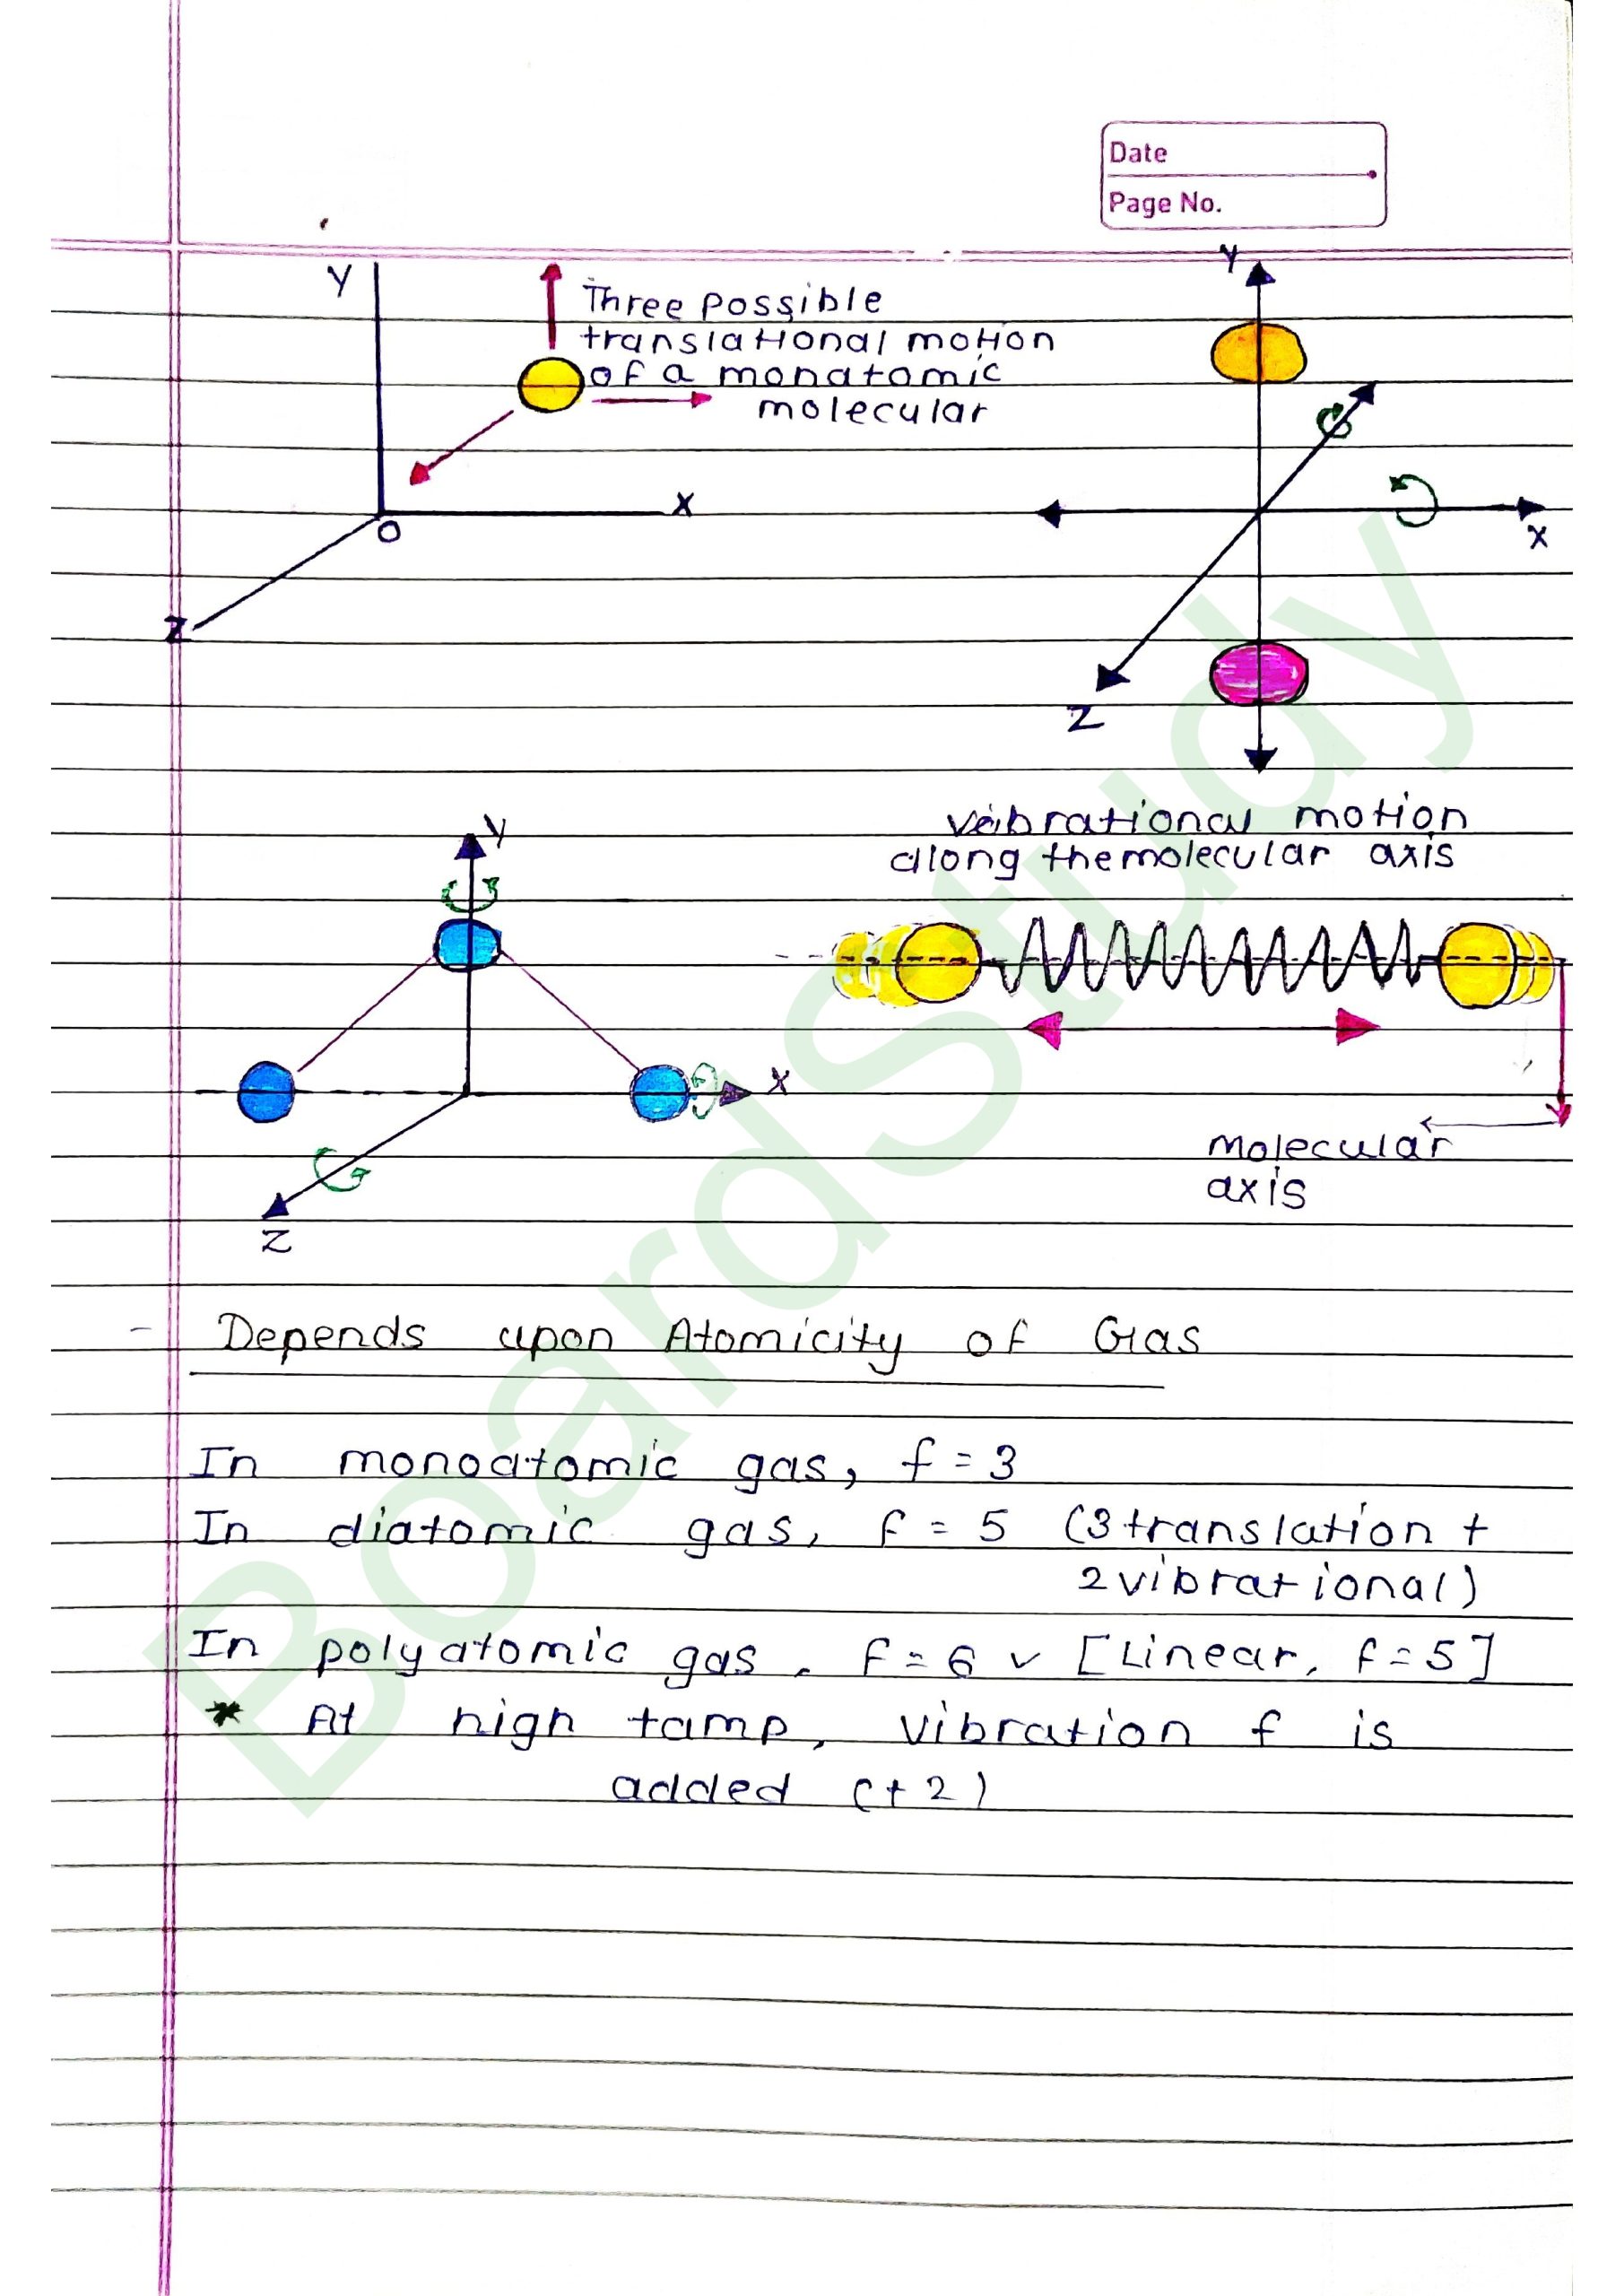 Date
Page No.
Y
Three possible
translational motion
of a monatomic
molecular
X
O
Z
Y
X
Z
Vibrational motion
along the molecular axis
Y
X
Z
molecular
axis
- Depends upon Atomicity of Gas
In monoatomic gas, f = 3
In diatomic gas, f = 5 (3 translation +
2 vibrational)
In polyatomic gas, f = 6 ✓ [Linear, f = 5]
* At high tamp, vibration f is
added (+2)
BoardStudy